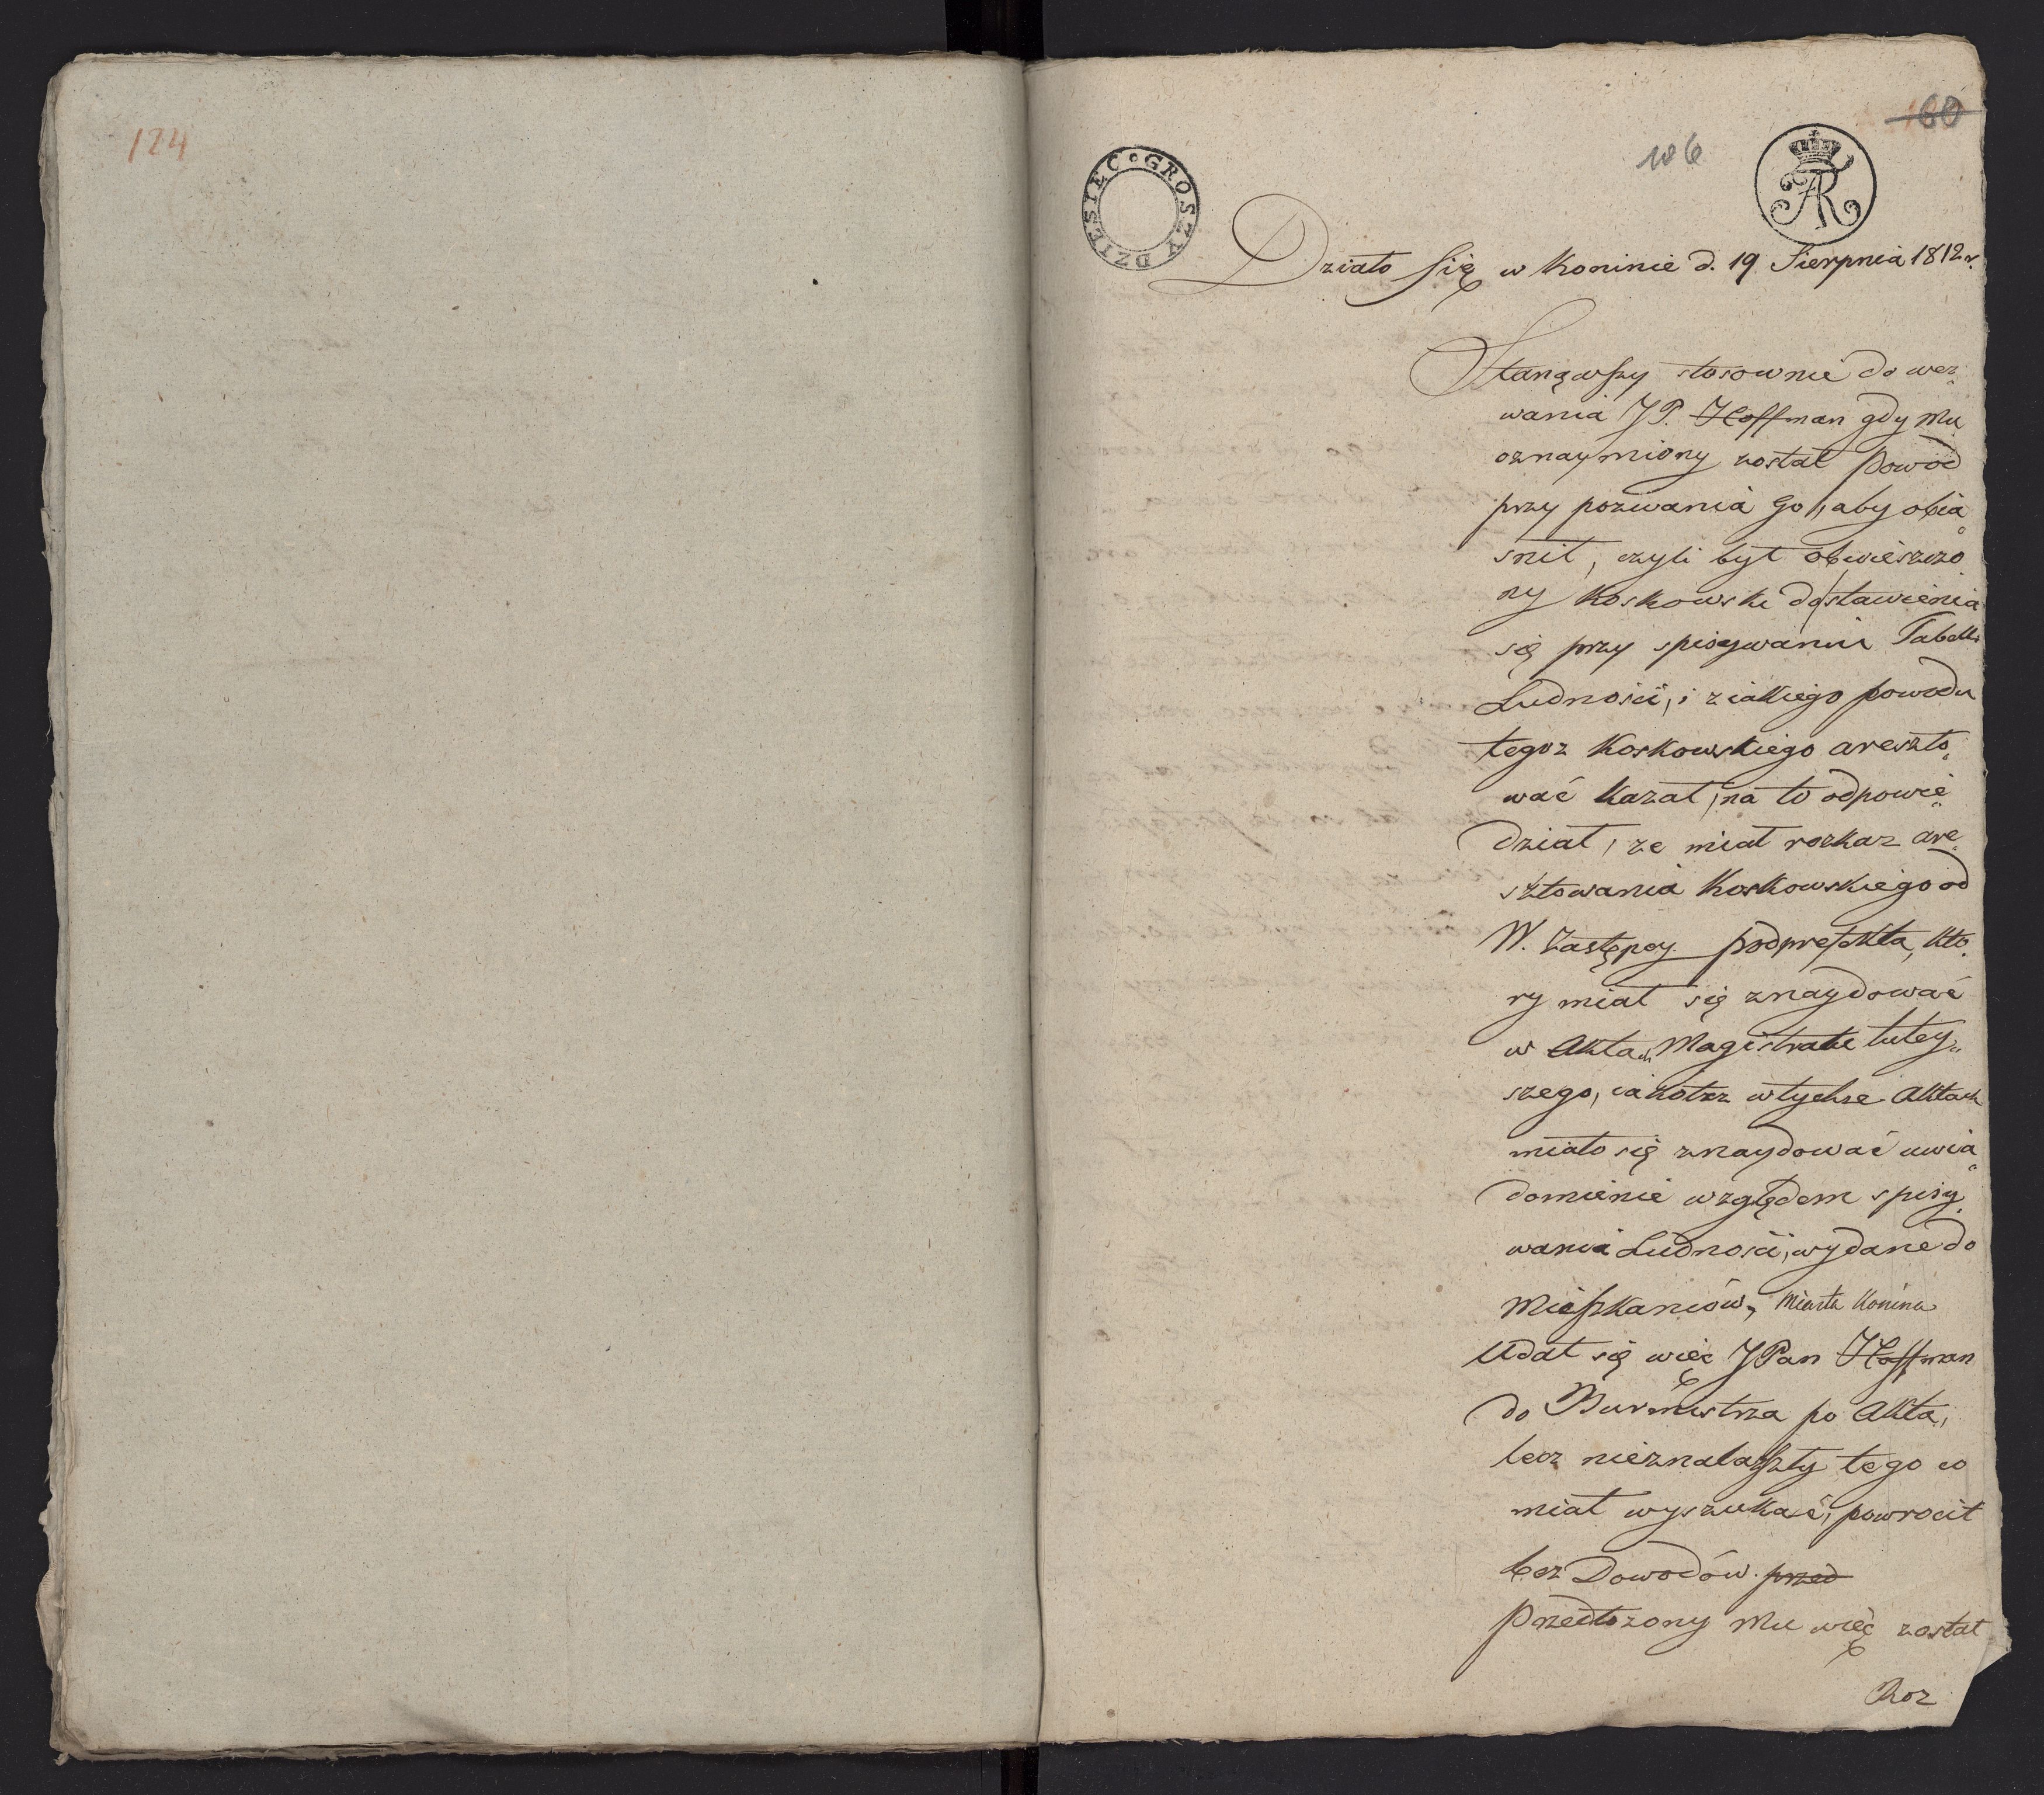 124
60
106
DZIESIĘC • GROSZY
AR
Działo się w Koninie d. 19 Sierpnia 1812 r.
Stanąwszy stosownie do wez„
wania JP. Hoffman gdy Mu
oznaymiony został powód
przy pozwania Go, aby obia„
snił, czyli był obwieszczo
ny Koskowski do stawienia
się przy spisywaniu Tabelli
Ludności, i z iakiego powodu
tegoz Koskowskiego areszto„
wać kazał, na to odpowie„
dział, ze miał rozkaz are„
sztowania Koskowskiego od
W. Zastępcy podprefekta, kto„
ry miał się znaydować
w Aktach Magistratu tutey„
szego, iakotez w tychze Aktach
miało się znaydować uwia„
domienie względem spisy„
wania Ludności, wydane do
Mieszkańców, Miasta Konina
Udał się więc JPan Hoffman
do Burmistrza po Akta,
lecz nieznalaszszy tego co
miał wyszukać, powrócił
bez Dowodów. przed
Przedłożony Mu więc został
Roz